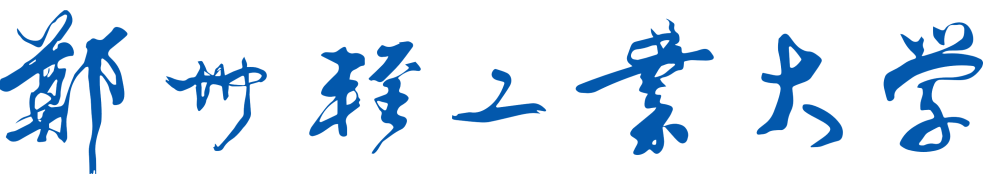 鄭州輕工業大学